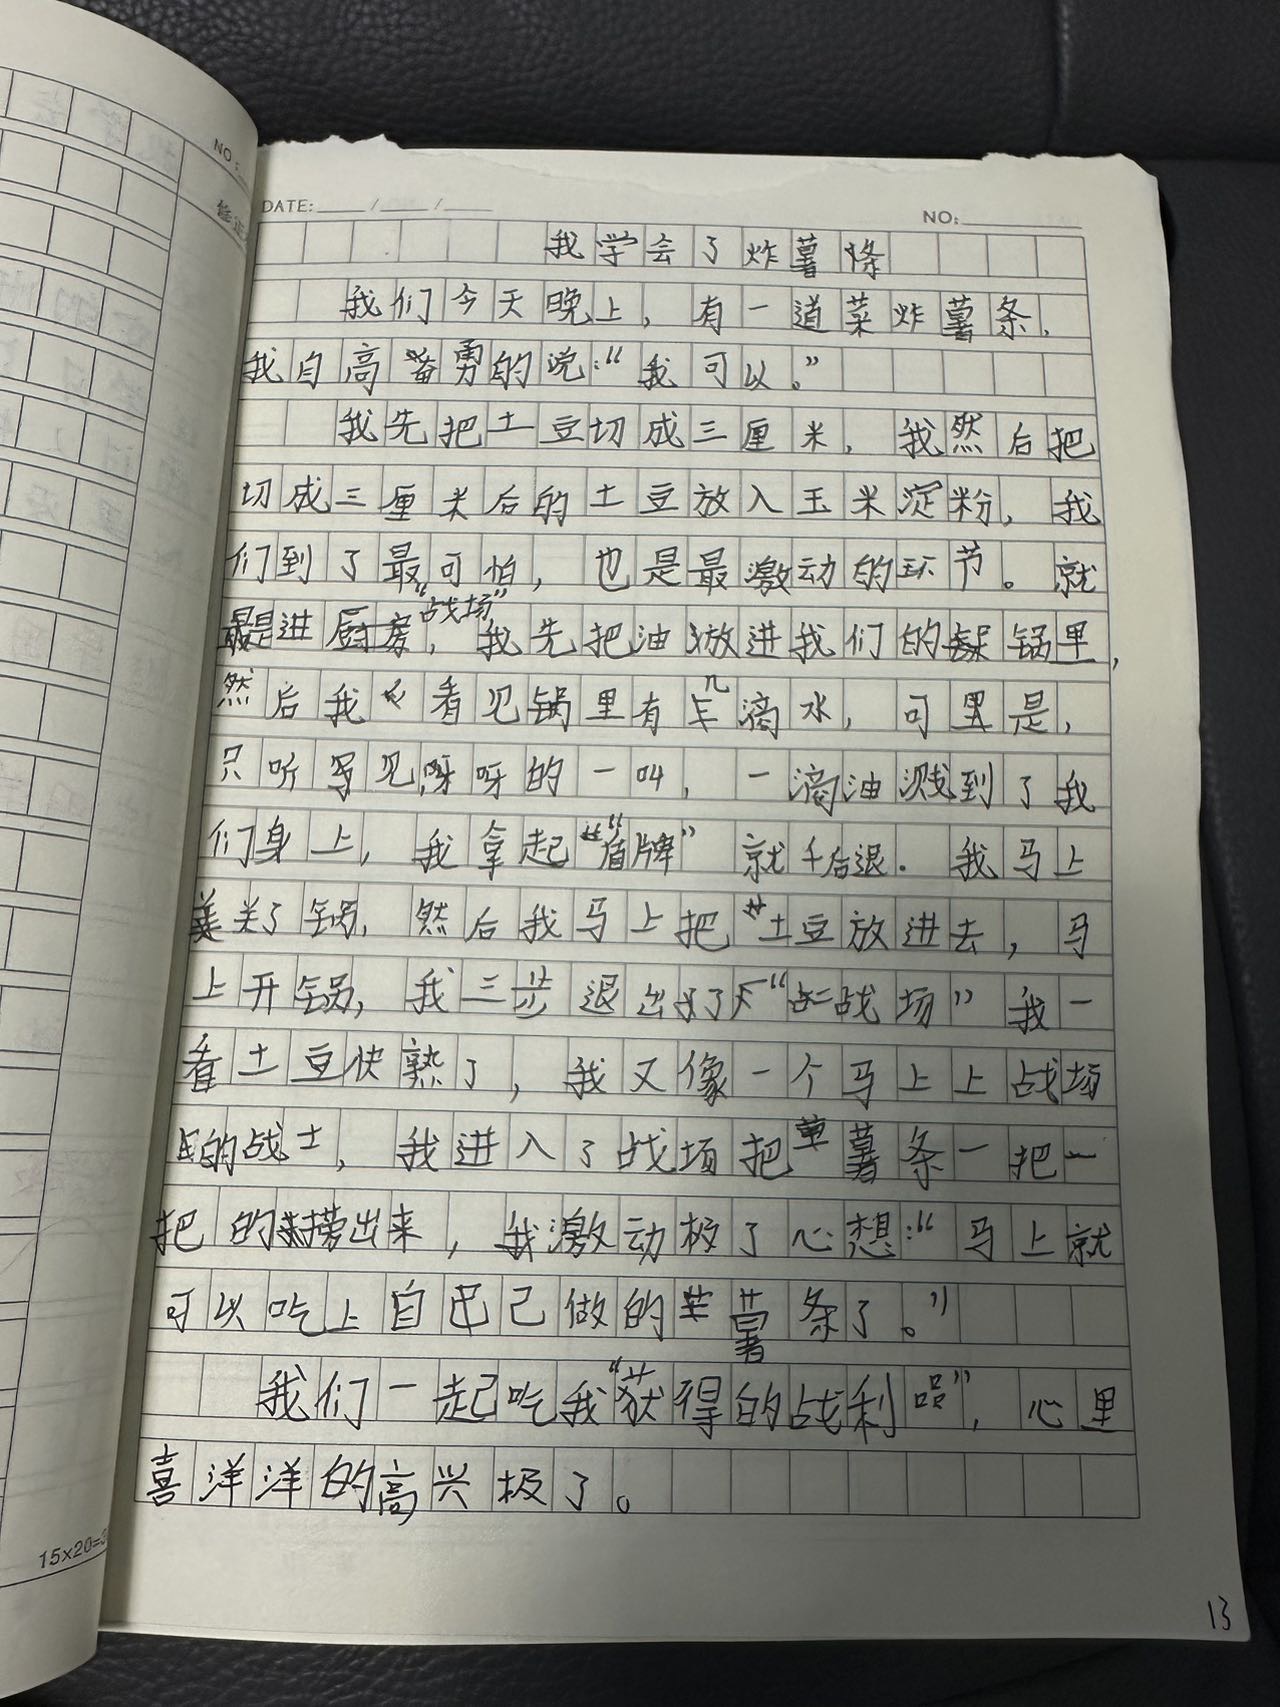 DATE: / /
NO:
NO:
我学会了炸薯条
我们今天晚上，有一道菜炸薯条，
我自高奋勇的说：“我可以。”
我先把土豆切成三厘米，我然后把
切成三厘米后的土豆放入玉米淀粉，我
们到了最可怕，也是最激动的环节。就
是进“战场”，我先把油放进我们的锅里，
然后我看见锅里有几滴水，可是，
只听见呀呀的一叫，一滴油溅到了我
们身上，我拿起“盾牌”就千后退．我马上
关了锅，然后我马上把土豆放进去，马
上开锅，我三步退出了“战场”我一
看土豆快熟了，我又像一个马上上战场
的战士，我进入了战场把薯条一把一
把的捞出来，我激动极了心想：“马上就
可以吃上自己做的薯条了。”
我们一起吃我“获得的战利品”，心里
喜洋洋的高兴极了。
15×20=3
13